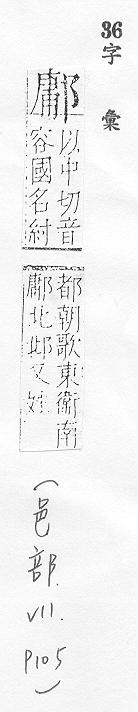 36
字彙
鄘以中切音
容國名紂
都朝歌東衞南
鄘北邶又姓
(邑部.
VII.
P105)